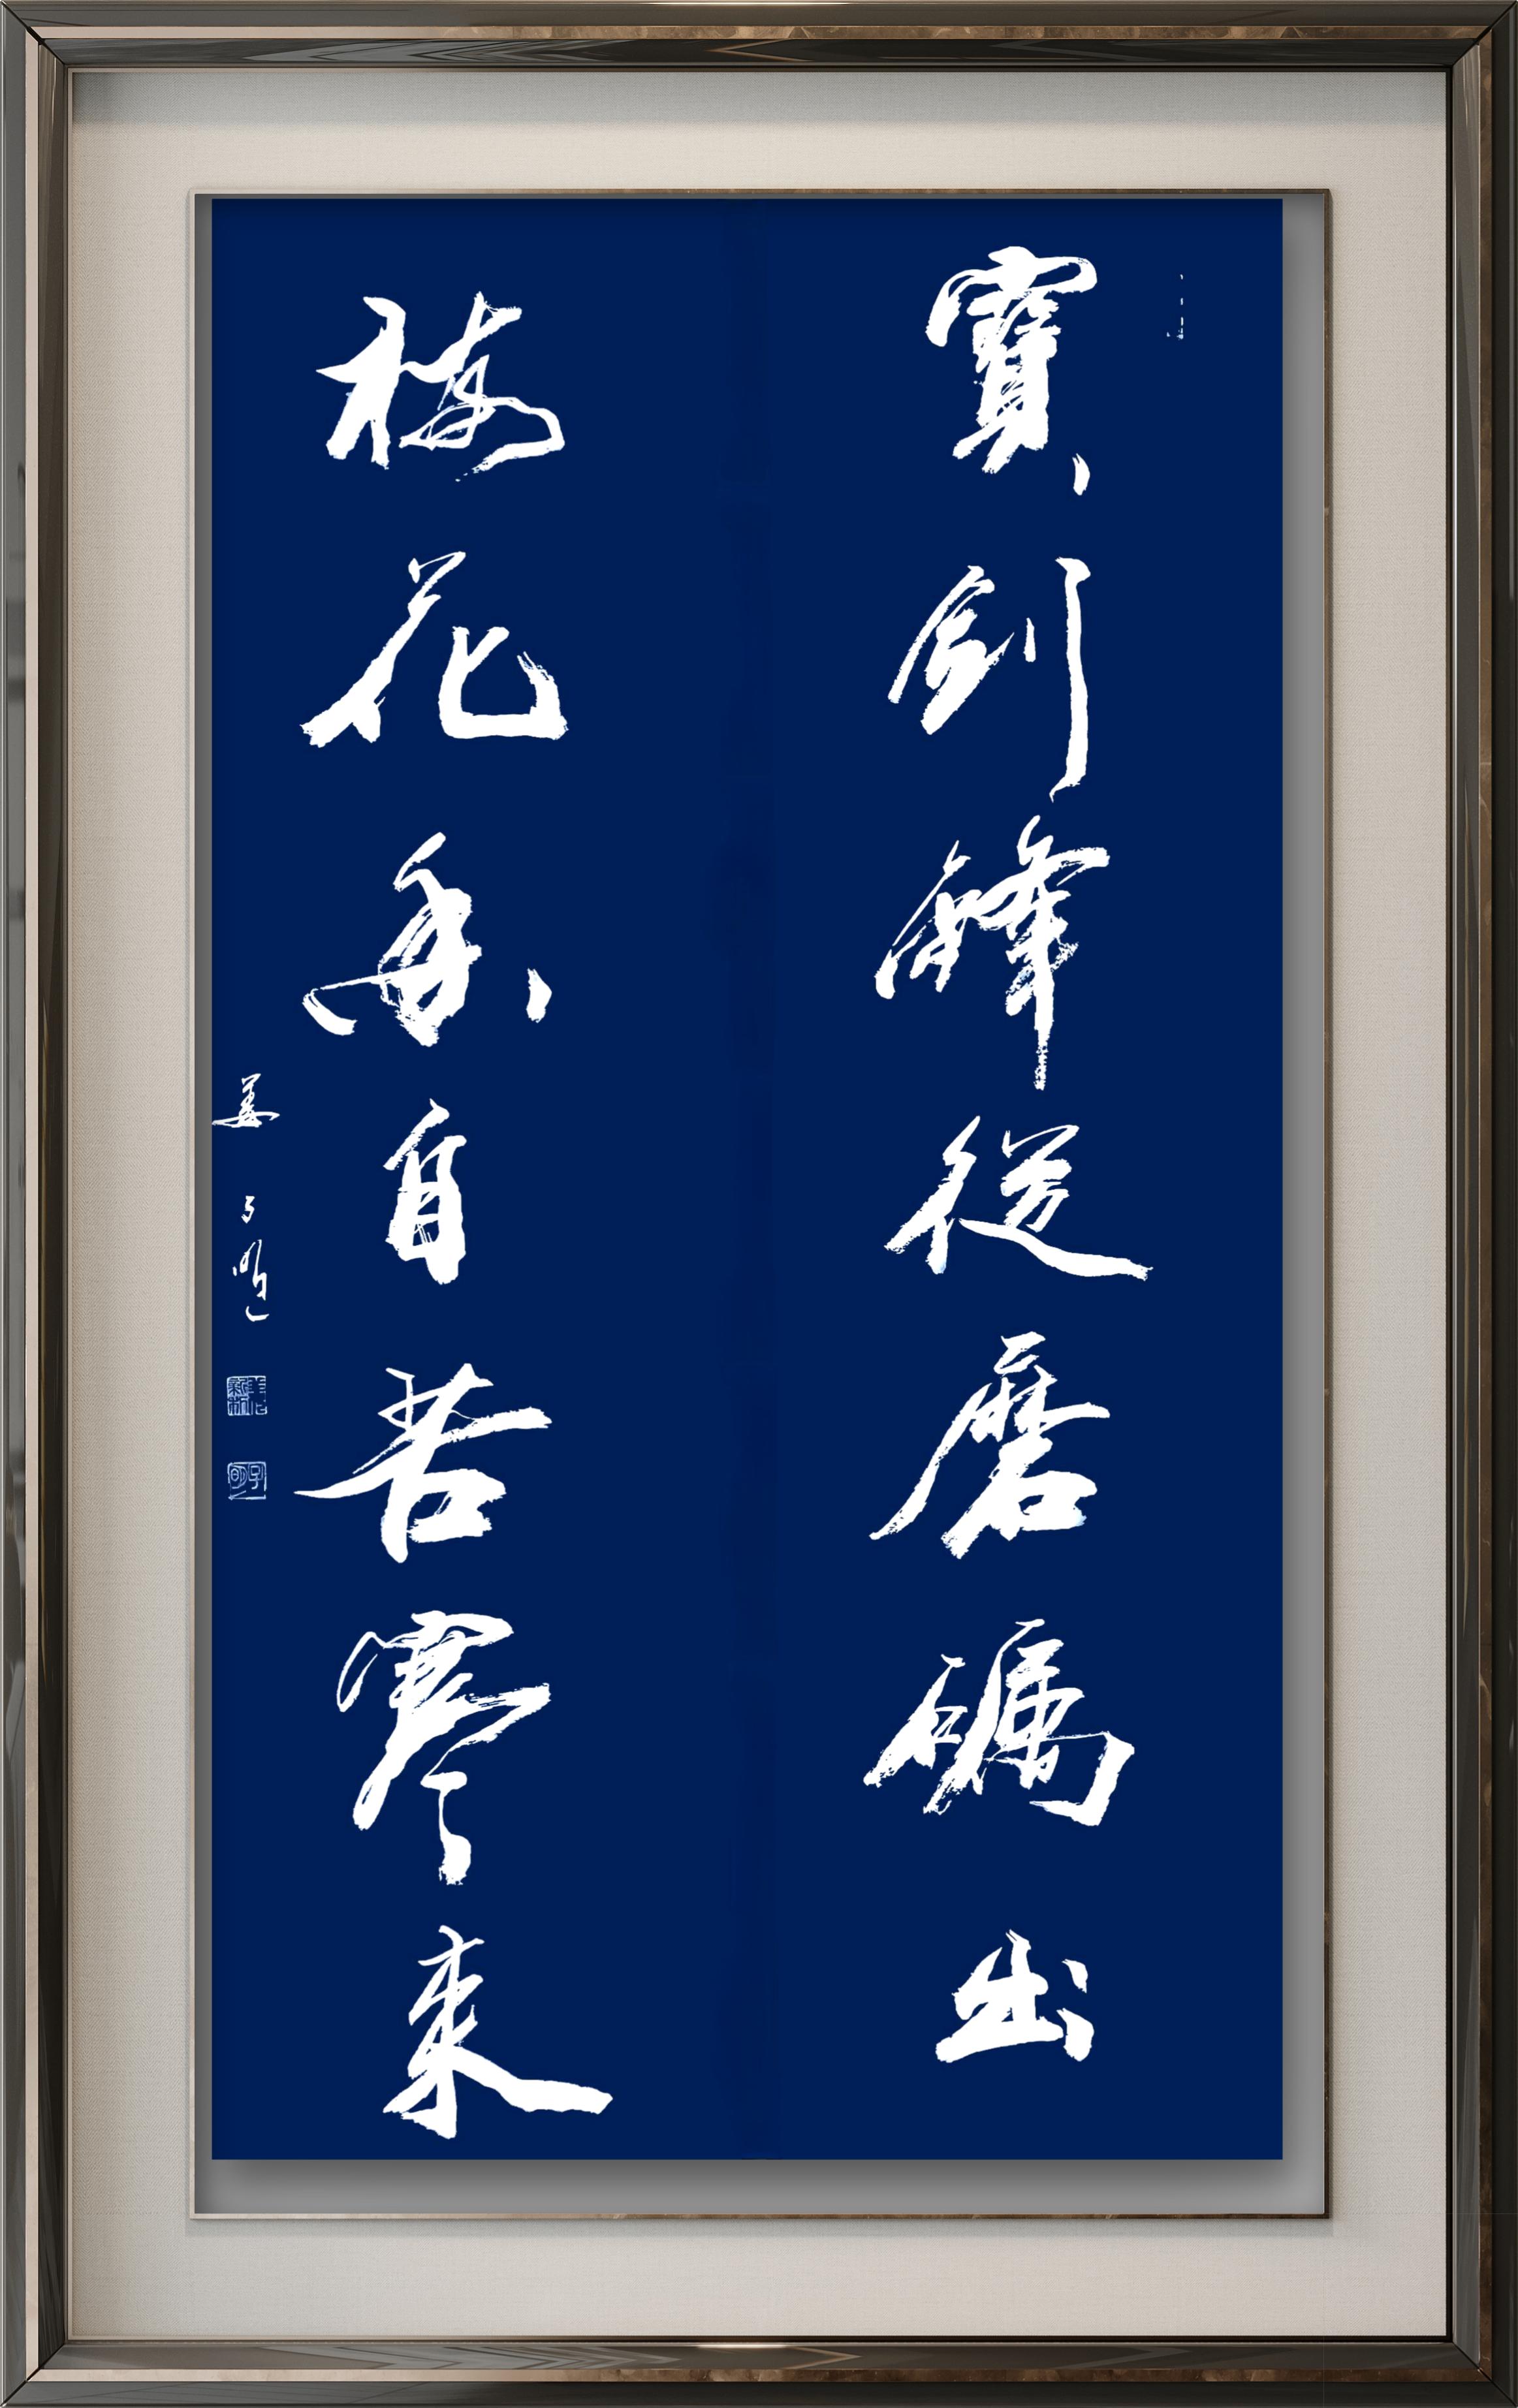 寶劍鋒從磨礪出
梅花香自苦寒來
姜